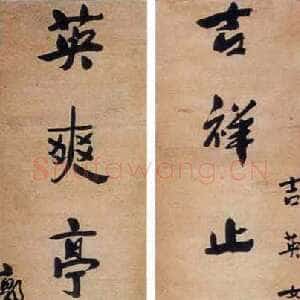 吉祥止
吉英
英爽亭
Shufawang.CN